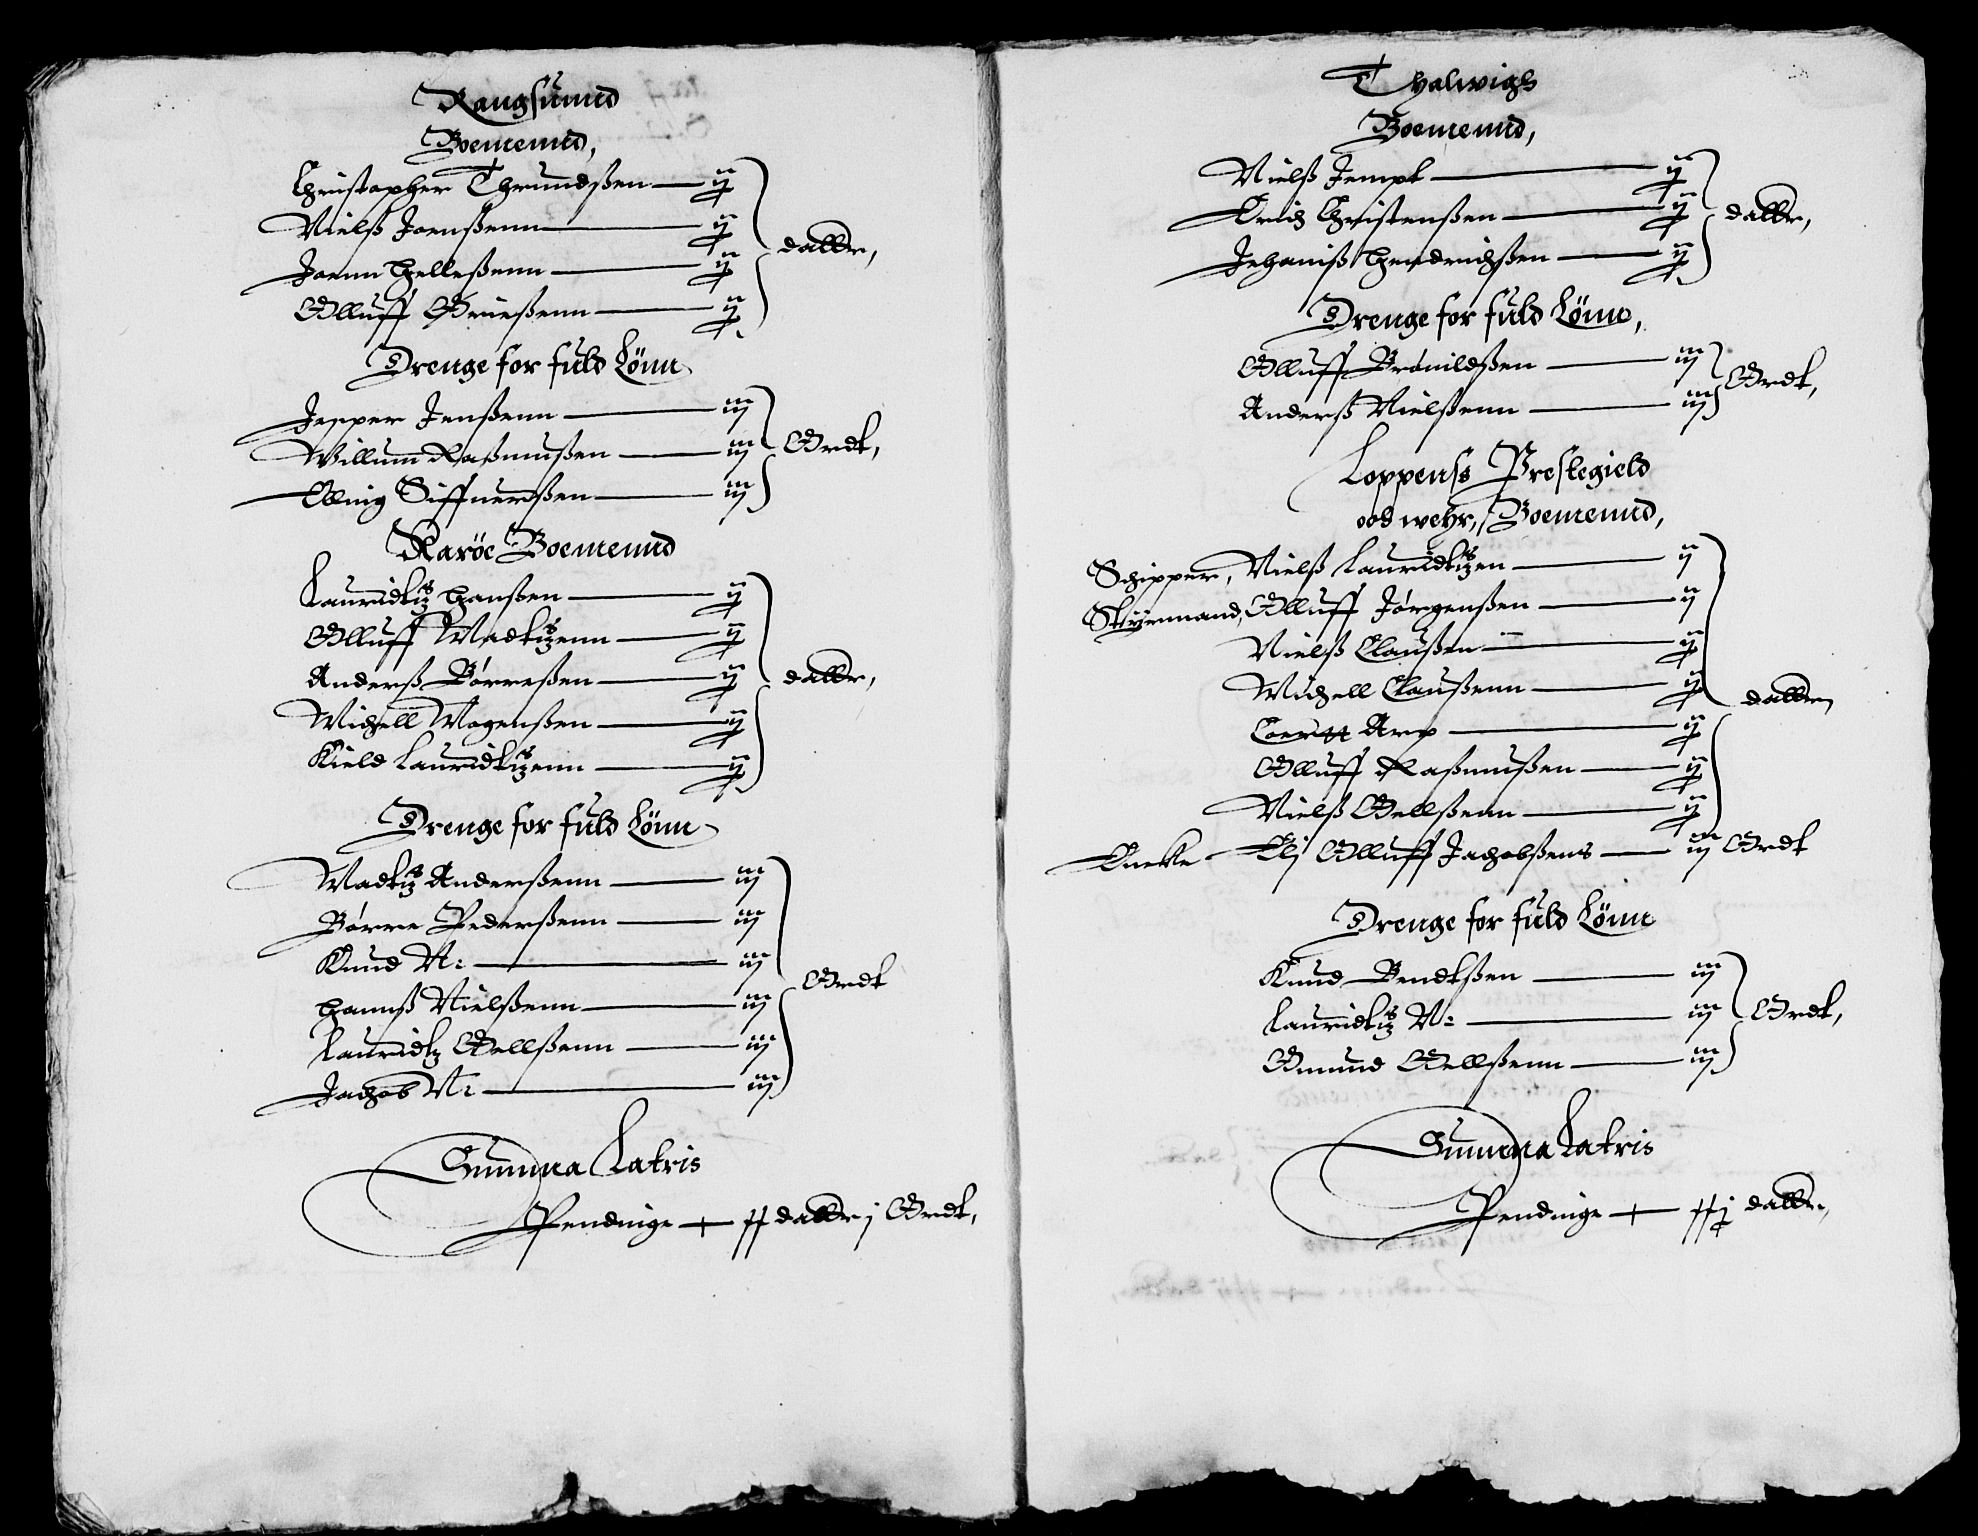 Rangsund
Boemennd,
Christopher Thrundßen — ij
Nielß Joenßenn — ij
Joenn Helleßenn — ij
Olluff Grießenn — ij
dallr,
Drenge for fuld Lönn
Jesper Jenßenn — iij
Willum Raßmußen — iij
Elling Siffuerdßen — iij
Ordt,
Karöe Boemennd
Lauridtz Hanßen — ij
Olluff Madtzenn — ij
Anderß Börreßen — ij
Michell Mogenßen — ij
Kield Lauridtzenn — ij
dallr,
Drenge for fuld Lönn
Madtz Anderßenn — iij
Börre Pederßenn — iij
Knud N: — iij
Hannß Nielßenn — iij
Lauridtz Oellßenn — iij
Jachob N: — iij
Ordt
Summa Latris
Pendinge — xx dallr j Ordt,
Thalwigh
Boemennd,
Nielß Jempt — ij
Erich Christenßen — ij
Johaniß Hendrichßen — ij
dallr,
Drenge for fuld Lönn,
Olluff Brönildßen — iij
Anderß Nielßenn — iij
Ordt,
Loppens Prestegield
ood wehr, Boemennd,
Schipper, Nielß Lauridtzen — ij
Styrmand, Olluff Jörgenßen — ij
Nielß Claußen — ij
Michell Claußenn — ij
Coertt Arp — ij
Olluff Raßmußen — ij
Nielß Oellßenn — ij
dallr,
Enke Elj Olluff Jachobßens — iij Ordt
Drenge for fuld Lönn
Knud Bendtßen — iij
Lauridtz N: — iij
Omund Oellßenn — iij
Ordt,
Summa Latris
Pendinge — xxj dallr,